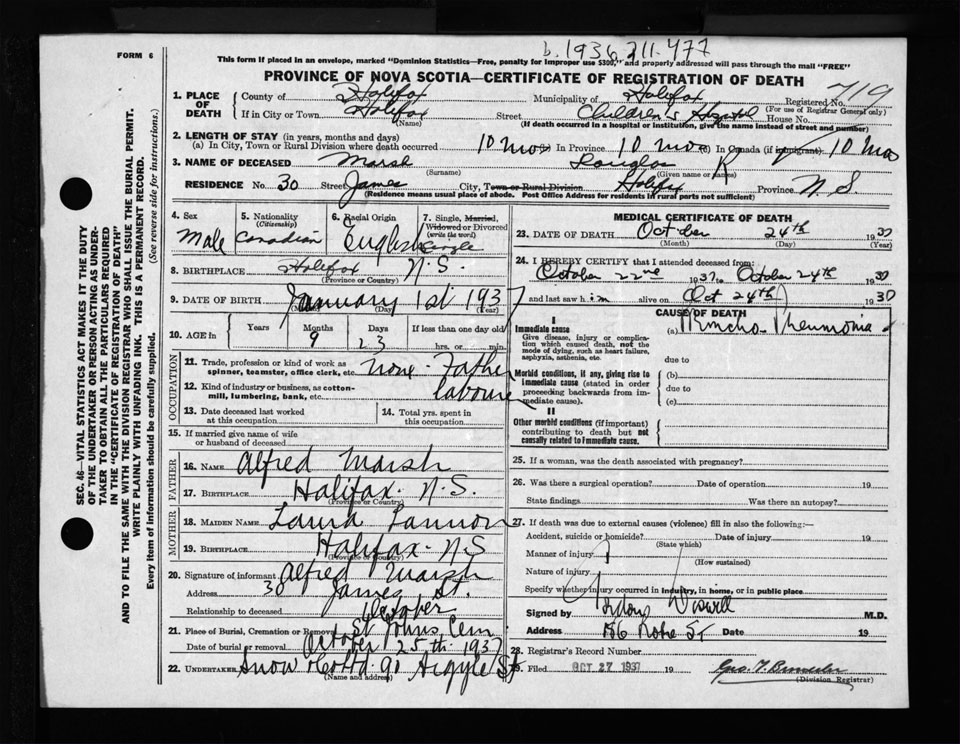 b. 1936 711-477
FORM 6
This form if placed in an envelope, marked "Dominion Statistics—Free, penalty for improper use $300," and properly addressed will pass through the mail "FREE"
PROVINCE OF NOVA SCOTIA—CERTIFICATE OF REGISTRATION OF DEATH
1. PLACE OF DEATH
County of Halifax Municipality of Halifax Registered No. 719
(For use of Registrar General only)
If in City or Town Halifax Street Children's Hospital House No.
(Name) (If death occurred in a hospital or institution, give the name instead of street and number)
2. LENGTH OF STAY (in years, months and days)
(a) In City, Town or Rural Division where death occurred 10 mos In Province 10 mos In Canada (if immigrant) 10 mos
3. NAME OF DECEASED Marsh Douglas R
(Surname) (Given name or names)
RESIDENCE No. 30 Street James City, Town or Rural Division Halifax Province N.S.
(Residence means usual place of abode. Post Office Address for residents in rural parts not sufficient)
4. Sex Male
5. Nationality (Citizenship) Canadian
6. Racial Origin English
7. Single, Married, Widowed or Divorced (write the word) Single
8. BIRTHPLACE Halifax N.S.
(Province or Country)
9. DATE OF BIRTH January 1st 1937
(Year)
10. AGE IN Years Months Days If less than one day old
9 23 hrs. or min.
OCCUPATION
11. Trade, profession or kind of work as spinner, teamster, office clerk, etc. none - Father
12. Kind of industry or business, as cotton-mill, lumbering, bank, etc. labourer
13. Date deceased last worked at this occupation
14. Total yrs. spent in this occupation
15. If married give name of wife or husband of deceased
FATHER
16. NAME Alfred Marsh
17. BIRTHPLACE Halifax - N.S.
(Province or Country)
MOTHER
18. MAIDEN NAME Laura Lannon
19. BIRTHPLACE Halifax - N.S
(Province or Country)
20. Signature of informant Alfred Marsh
Address 30 James St.
Relationship to deceased
21. Place of Burial, Cremation or Removal St Johns Cem
Date of burial or removal October 25th 1937
22. UNDERTAKER Snow & Co Ltd. 90 Argyle St
(Name and address)
MEDICAL CERTIFICATE OF DEATH
23. DATE OF DEATH October 24th 1937
(Month) (Day) (Year)
24. I HEREBY CERTIFY that I attended deceased from:
October 22nd 1937 to October 24th 1937
and last saw him alive on Oct 24th 1937
CAUSE OF DEATH
I
Immediate cause (a) Broncho-Pneumonia
Give disease, injury or complication which caused death, not the mode of dying, such as heart failure, asphyxia, asthenia, etc.
due to
Morbid conditions, if any, giving rise to immediate cause (stated in order proceeding backwards from immediate cause).
(b)
due to
(c)
II
Other morbid conditions (if important) contributing to death but not causally related to immediate cause.
25. If a woman, was the death associated with pregnancy?
26. Was there a surgical operation? Date of operation 19
State findings Was there an autopsy?
27. If death was due to external causes (violence) fill in also the following:—
Accident, suicide or homicide? Date of injury 19
(State which)
Manner of injury
(How sustained)
Nature of injury
Specify whether injury occurred in industry, in home, or in public place
Signed by Wiswell M.D.
Address 186 Robie St Date 19
28. Registrar's Record Number
Filed OCT 27 1937 19
(Division Registrar)
SEC. 46—VITAL STATISTICS ACT MAKES IT THE DUTY
OF THE UNDERTAKER OR PERSON ACTING AS UNDER-
TAKER TO OBTAIN ALL THE PARTICULARS REQUIRED
IN THE "CERTIFICATE OF REGISTRATION OF DEATH"
AND TO FILE THE SAME WITH THE DIVISION REGISTRAR WHO SHALL ISSUE THE BURIAL PERMIT.
WRITE PLAINLY WITH UNFADING INK. THIS IS A PERMANENT RECORD.
Every item of information should be carefully supplied. (See reverse side for instructions.)